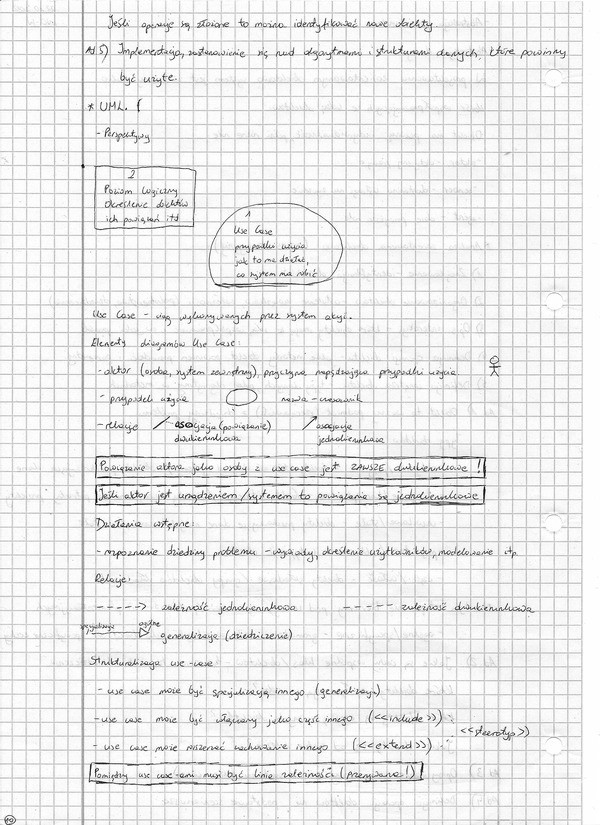 Jeśli operacje są złożone to można identyfikować nowe obiekty.
Ad 5) Implementacja, zastanowienie się nad algorytmami i strukturami danych, które powinny
być użyte.
* UML.
- Perspektywy
2
Poziom logiczny
Określenie obiektów
ich powiązań itd
1
Use Case
przypadki użycia
jak to ma działać,
co system ma robić
Use Case - ciąg wykonywanych przez system akcji.
Elementy diagramów Use Case:
- aktor (osoba, system zewnętrzny), przyczyna napędzająca przypadki użycia
- przypadek użycia nazwa - czasownik
- relacje asocjacja (powiązanie) asocjacja
dwukierunkowa jednokierunkowa
Powiązanie aktora jako osoby z use case jest ZAWSZE dwukierunkowe!
Jeśli aktor jest urządzeniem/systemem to powiązania są jednokierunkowe
Działania wstępne:
- rozpoznanie dziedziny problemu - wywiady, określenie użytkowników, modelowanie itp.
Relacje:
-----> zależność jednokierunkowa ----- zależność dwukierunkowa
specjalizacja ogólne
generalizacja (dziedziczenie)
Strukturalizacja use-case
- use case może być specjalizacją innego (generalizacja)
- use case może być włączany jako część innego (<<include>>)
<<stereotyp>>
- use case może rozszerzać zachowanie innego (<<extend>>)
Pomiędzy use case-ami musi być linia zależności (przerywana!)